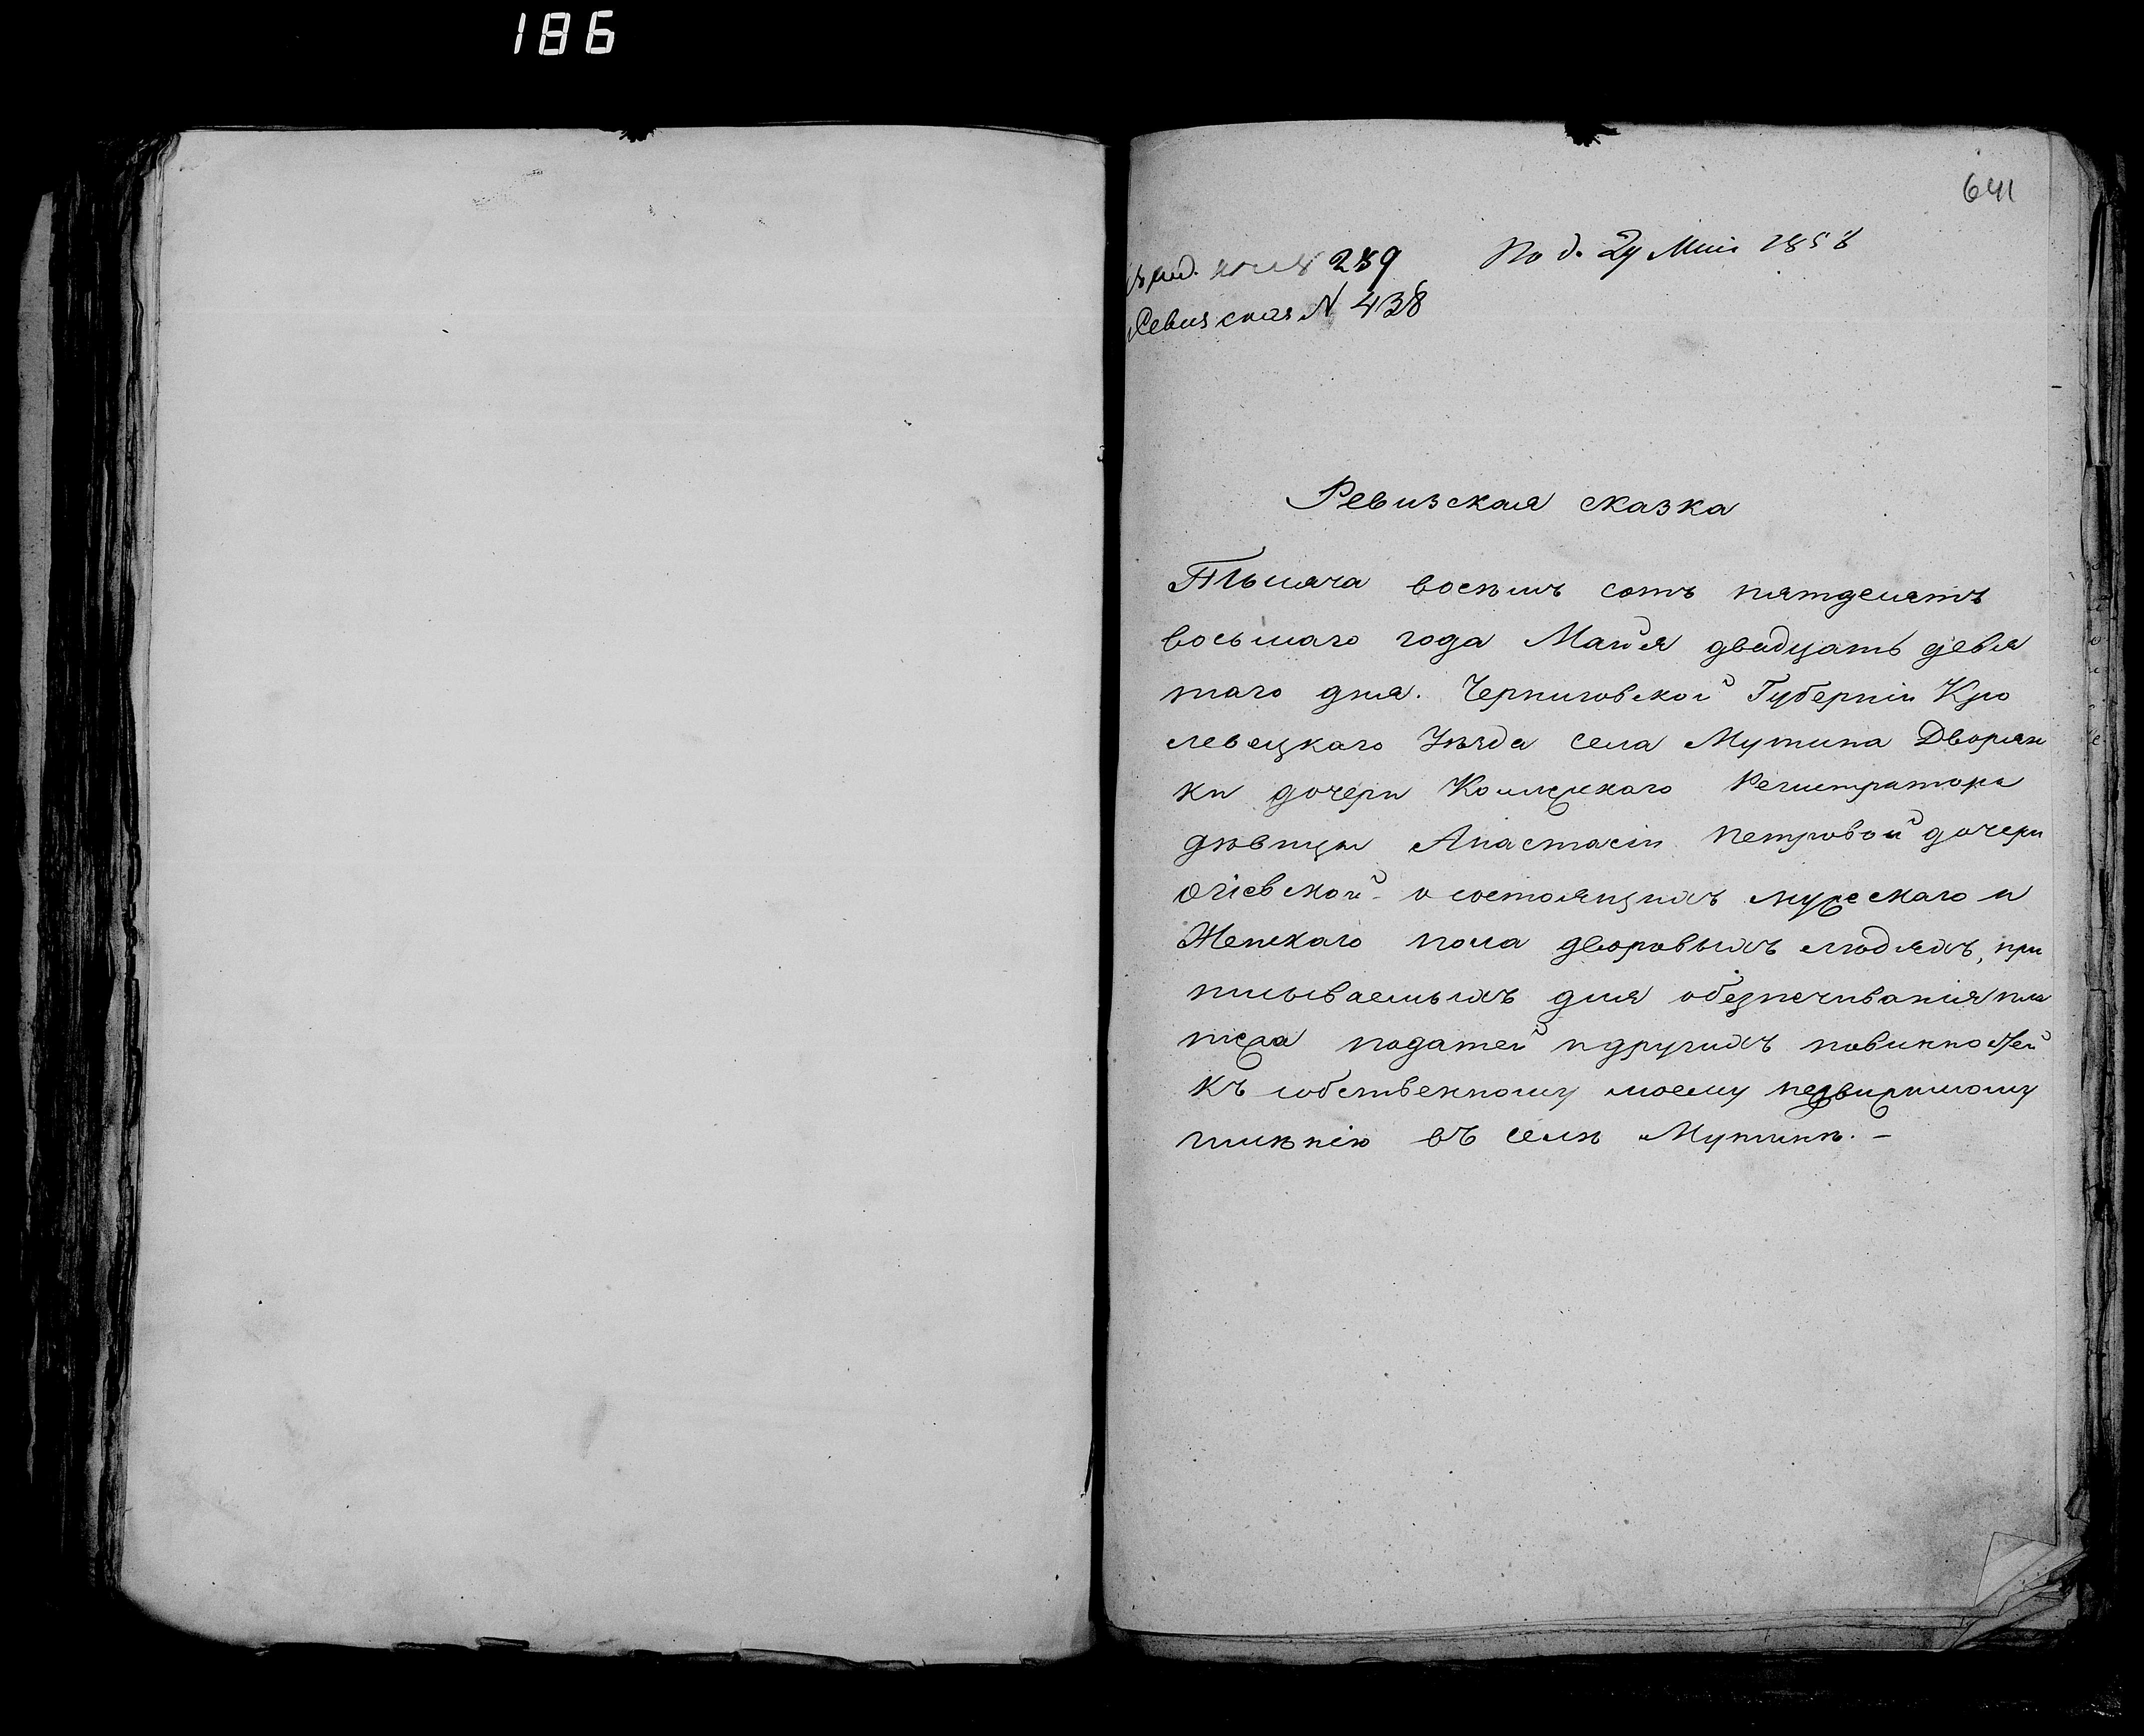 186
641
289 Под. 29 Маія 1858
Ревизская N 438
Ревизская сказка
Тысяча восемь сотъ пятдесятъ
восьмаго года Маія двадцать девя
таго дня. Черниговской Губерніи Кро
левецкаго Уѣзда села Мутина Дворян
ки дочери Коллежскаго Регистратора
дѣвицы Анастасіи Петровой дочери
Огіевской о состоящихъ мужескаго и
Женскаго пола дворовыхъ людяхъ, при
писываемыхъ для обезпечиванія пла
тежа податей и другихъ повинностей
къ собственному моему недвижимому
имѣнію въ селѣ Мутинѣ. –